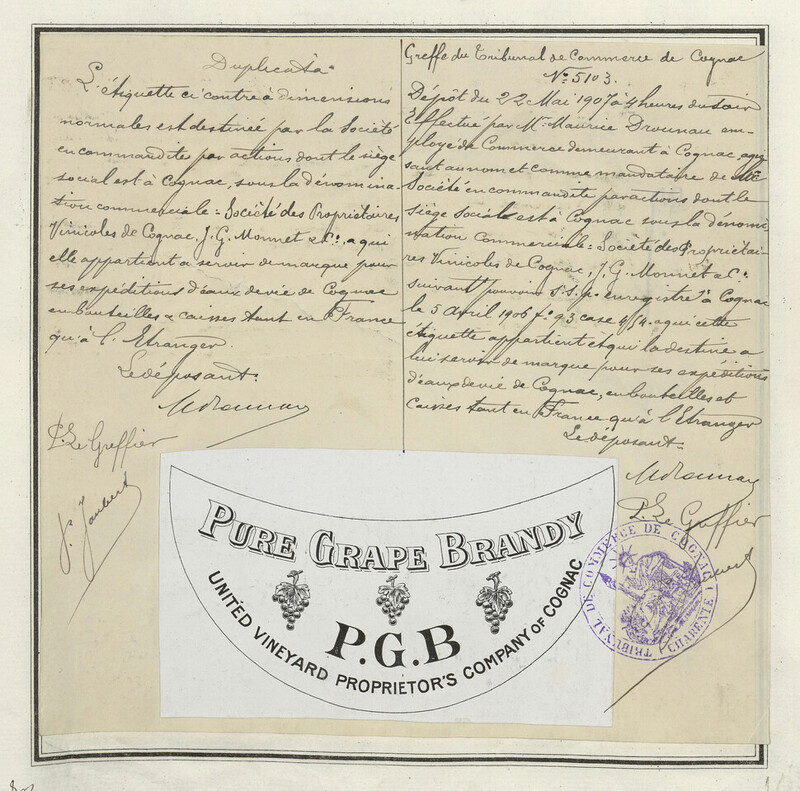 Duplicata
L'étiquette ci contre à dimensions
normales est destinée par la Société
en commandite par actions dont le siège
social est à Cognac, sous la dénomina
tion commerciale: Société des Propriétaires
Vinicoles de Cognac, J. G. Monnet & Cie. a qui
elle appartient a servir de marque pour
ses expéditions d'eaux de vie de Cognac
en bouteilles & caisses tant en France
qu'à l'Etranger.
Le déposant.
P. Le Greffier
J. Joubert
Greffe du Tribunal de Commerce de Cognac
No. 5103.
Dépôt du 22 Mai 1907 à 4 heures du soir
Effectué par Mr. Maurice Drounau em-
ployé de Commerce demeurant à Cognac, agis
sant au nom et comme mandataire de la
Société en commandite par actions dont le
siège social est à Cognac sous la dénomi
nation Commerciale: Société des Propriétai-
res Vinicoles de Cognac, J. G. Monnet & Cie.
suivant pouvoir s.s.p. enregistré à Cognac
le 5 Avril 1906 fo. 93 case 4/54. a qui cette
étiquette appartient et qui la destine a
lui servir de marque pour ses expéditions
d'eaux de vie de Cognac, en bouteilles et
Caisses tant en France qu'à l'Etranger
Le déposant.
P. Le Greffier
PURE GRAPE BRANDY
P.G.B
UNITED VINEYARD PROPRIETOR'S COMPANY OF COGNAC
TRIBUNAL DE COMMERCE DE COGNAC
CHARENTE